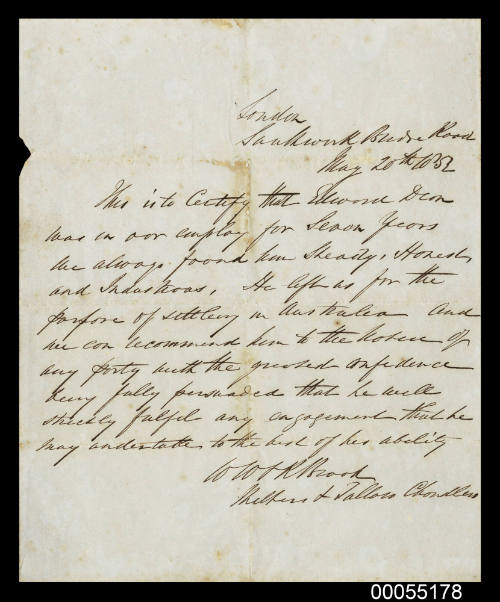 London
Southwark Bridge Road
May 20th 1852
This is to Certify that Edward Deon
was in our employ for Seven Years
We always found him Steady, Honest,
and Industrious, He left us for the
purpose of settling in Australia and
we can recommend him to the notice of
any party with the greatest confidence
being fully persuaded that he will
strictly fulfil any engagement that he
may undertake to the best of his ability
W W & R Brook
Melters & Tallow Chandlers
00055178